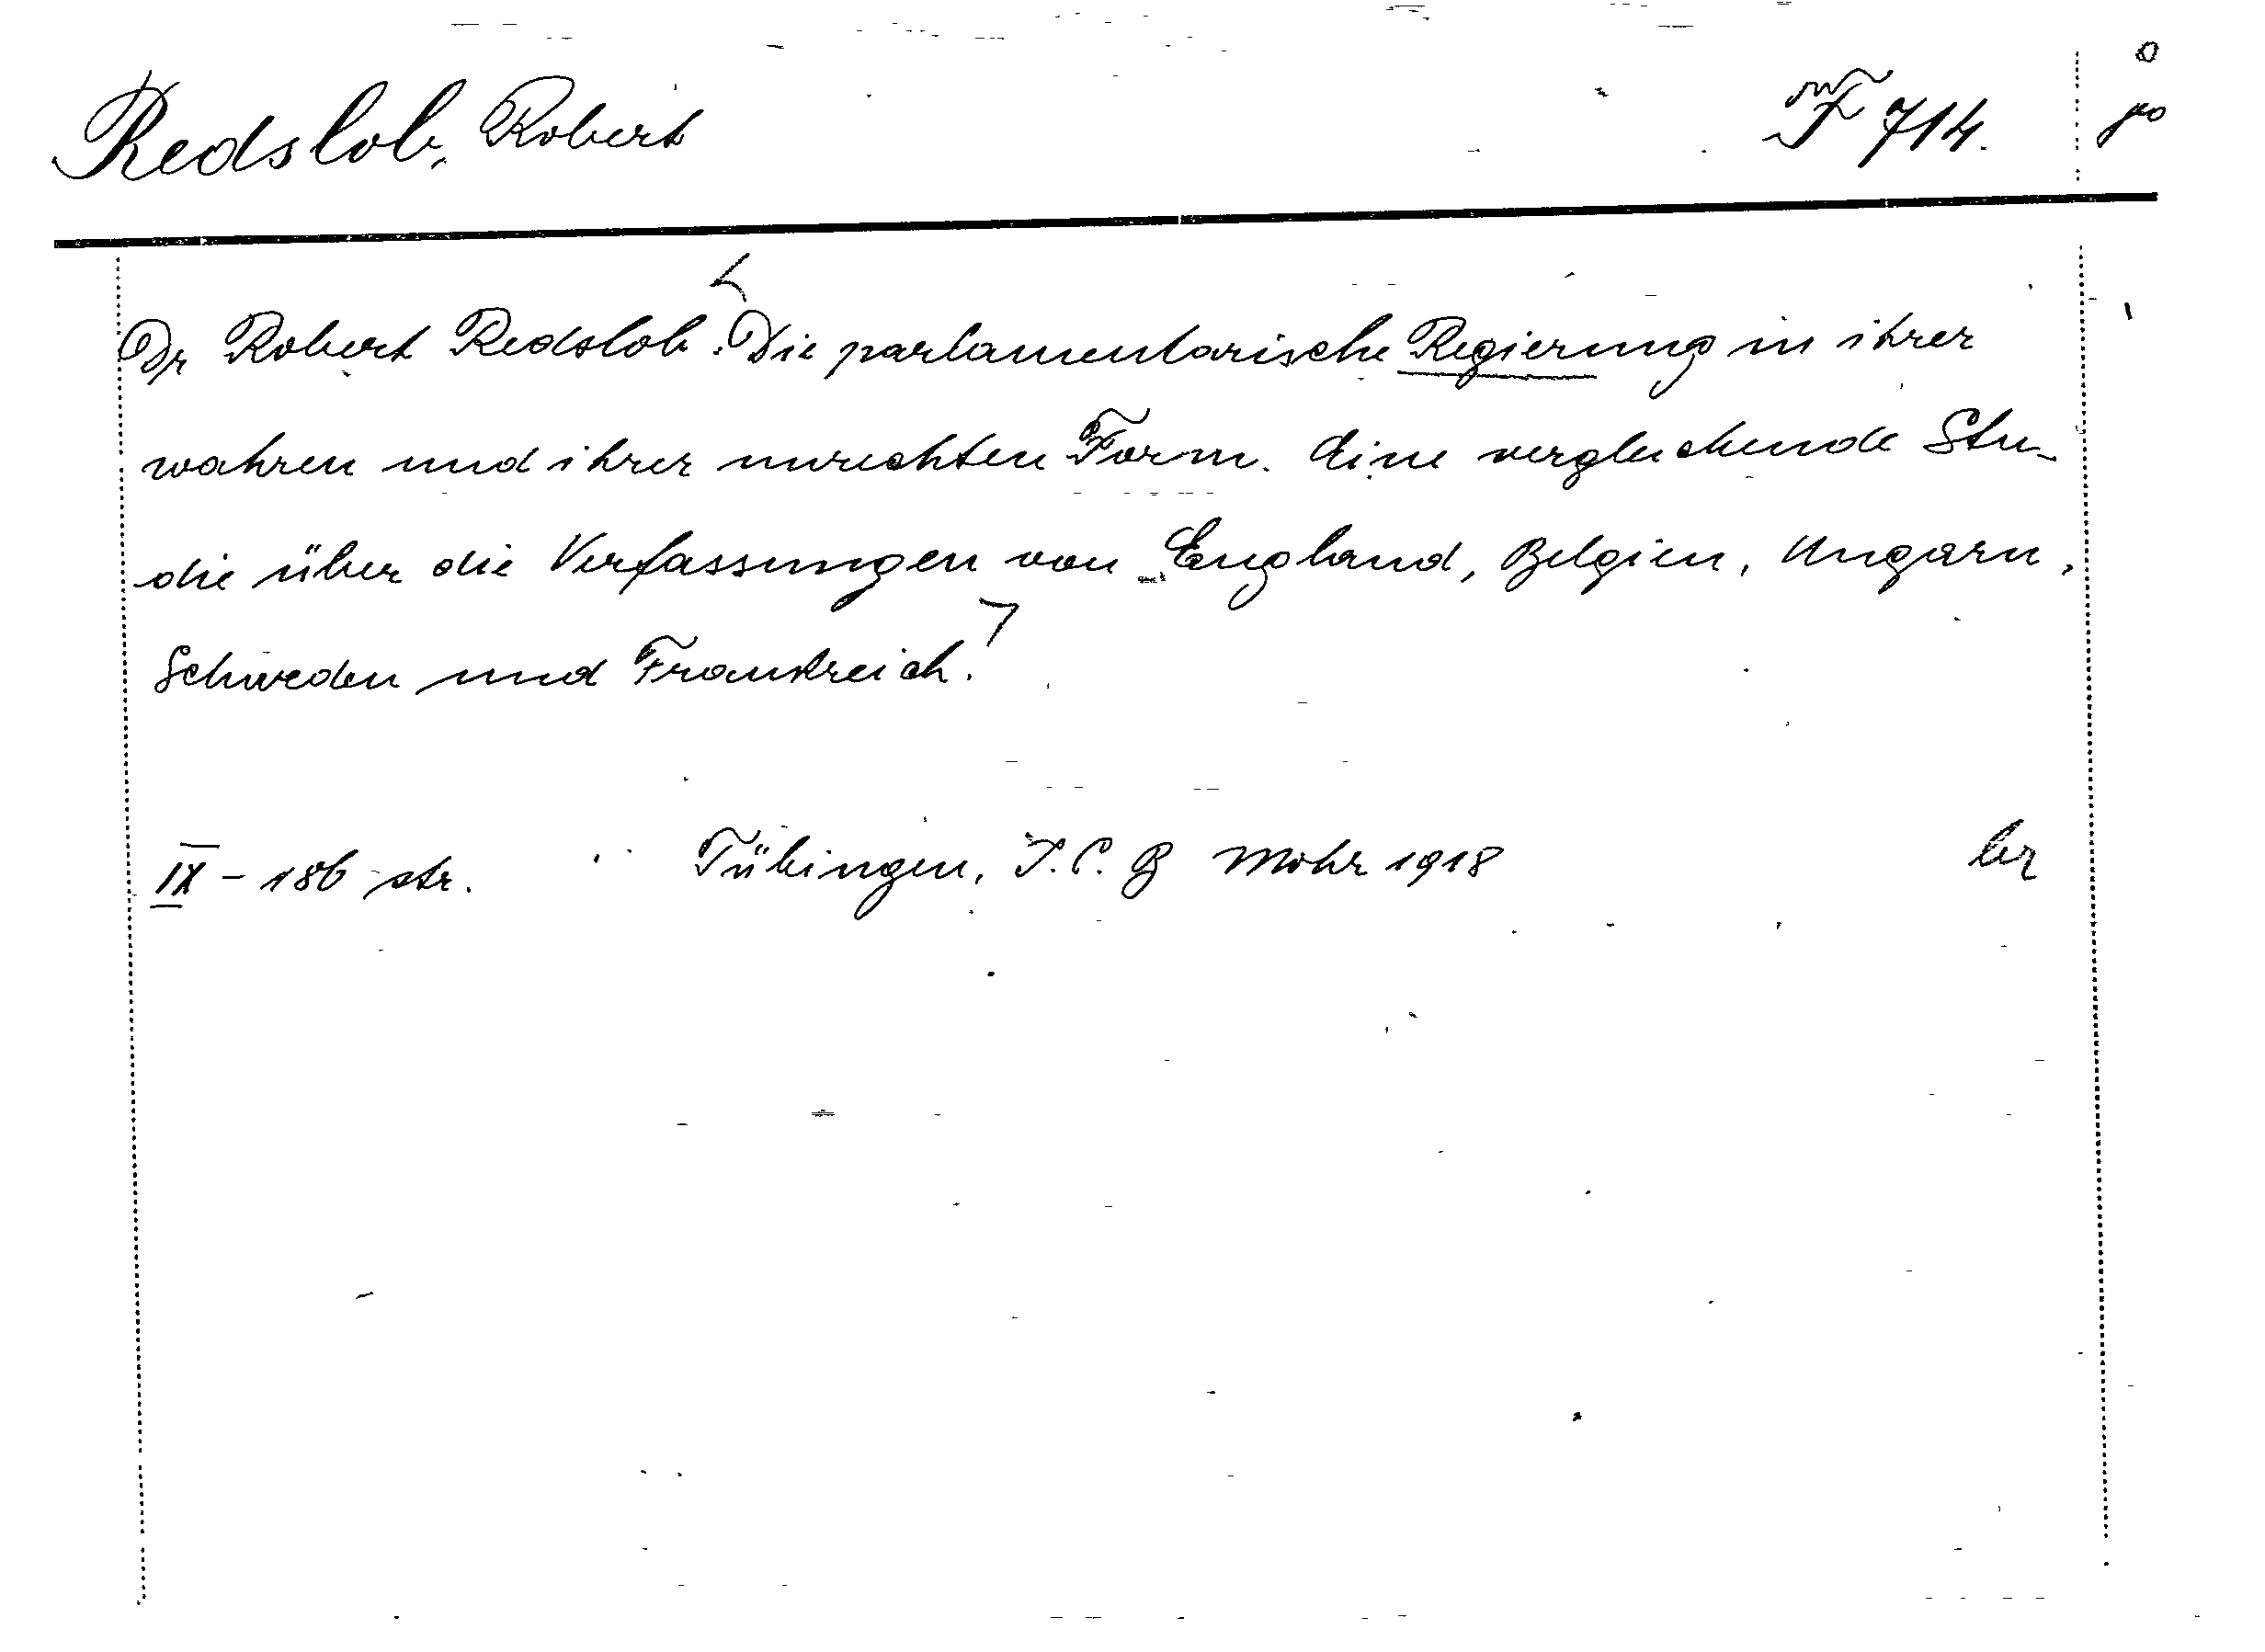 Redslob, Robert F 714. o
po
Dr Robert Redslob. Die parlamentarische Regierung in ihrer
wahren und ihrer unrechten Form. Eine vergleichende Stu-
die über die Verfassungen von England, Belgien, Ungarn,
Schweden und Frankreich.
IX - 186 str. Tübingen, J. C. B Mohr 1918 br